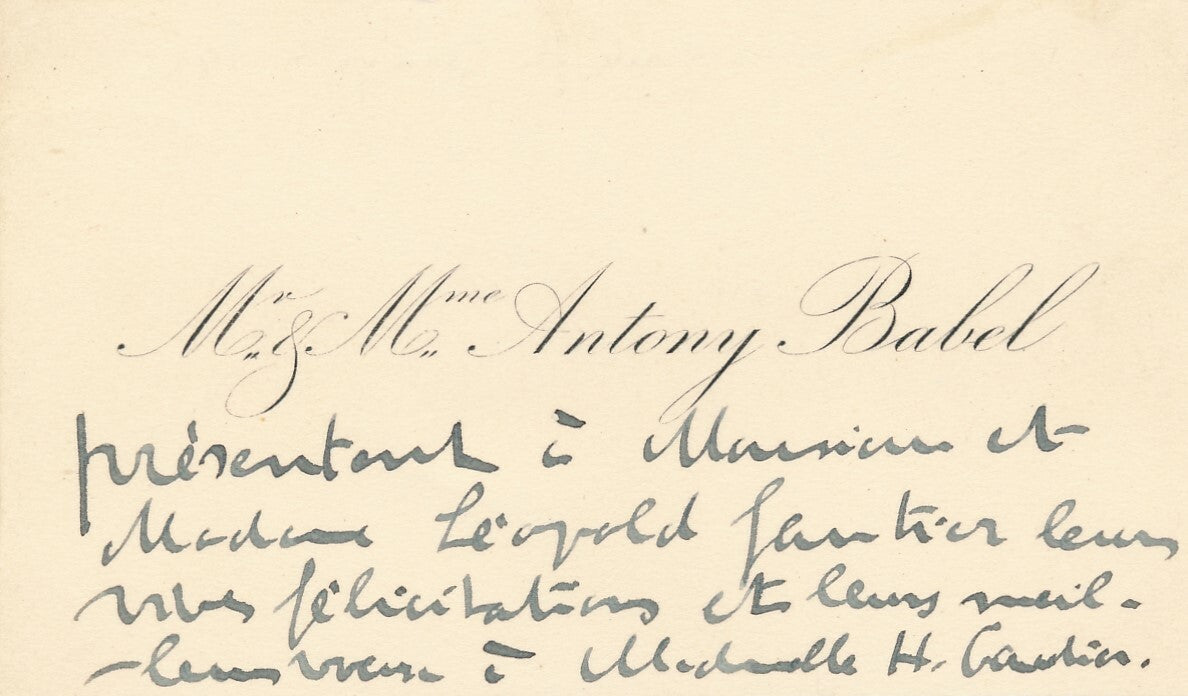 Mr. & Mme. Antony Babel
présentent à Monsieur et
Madame Léopold Gautier leurs
vives félicitations et leurs meil-
-leurs voeux à Mademoiselle H. Gautier.